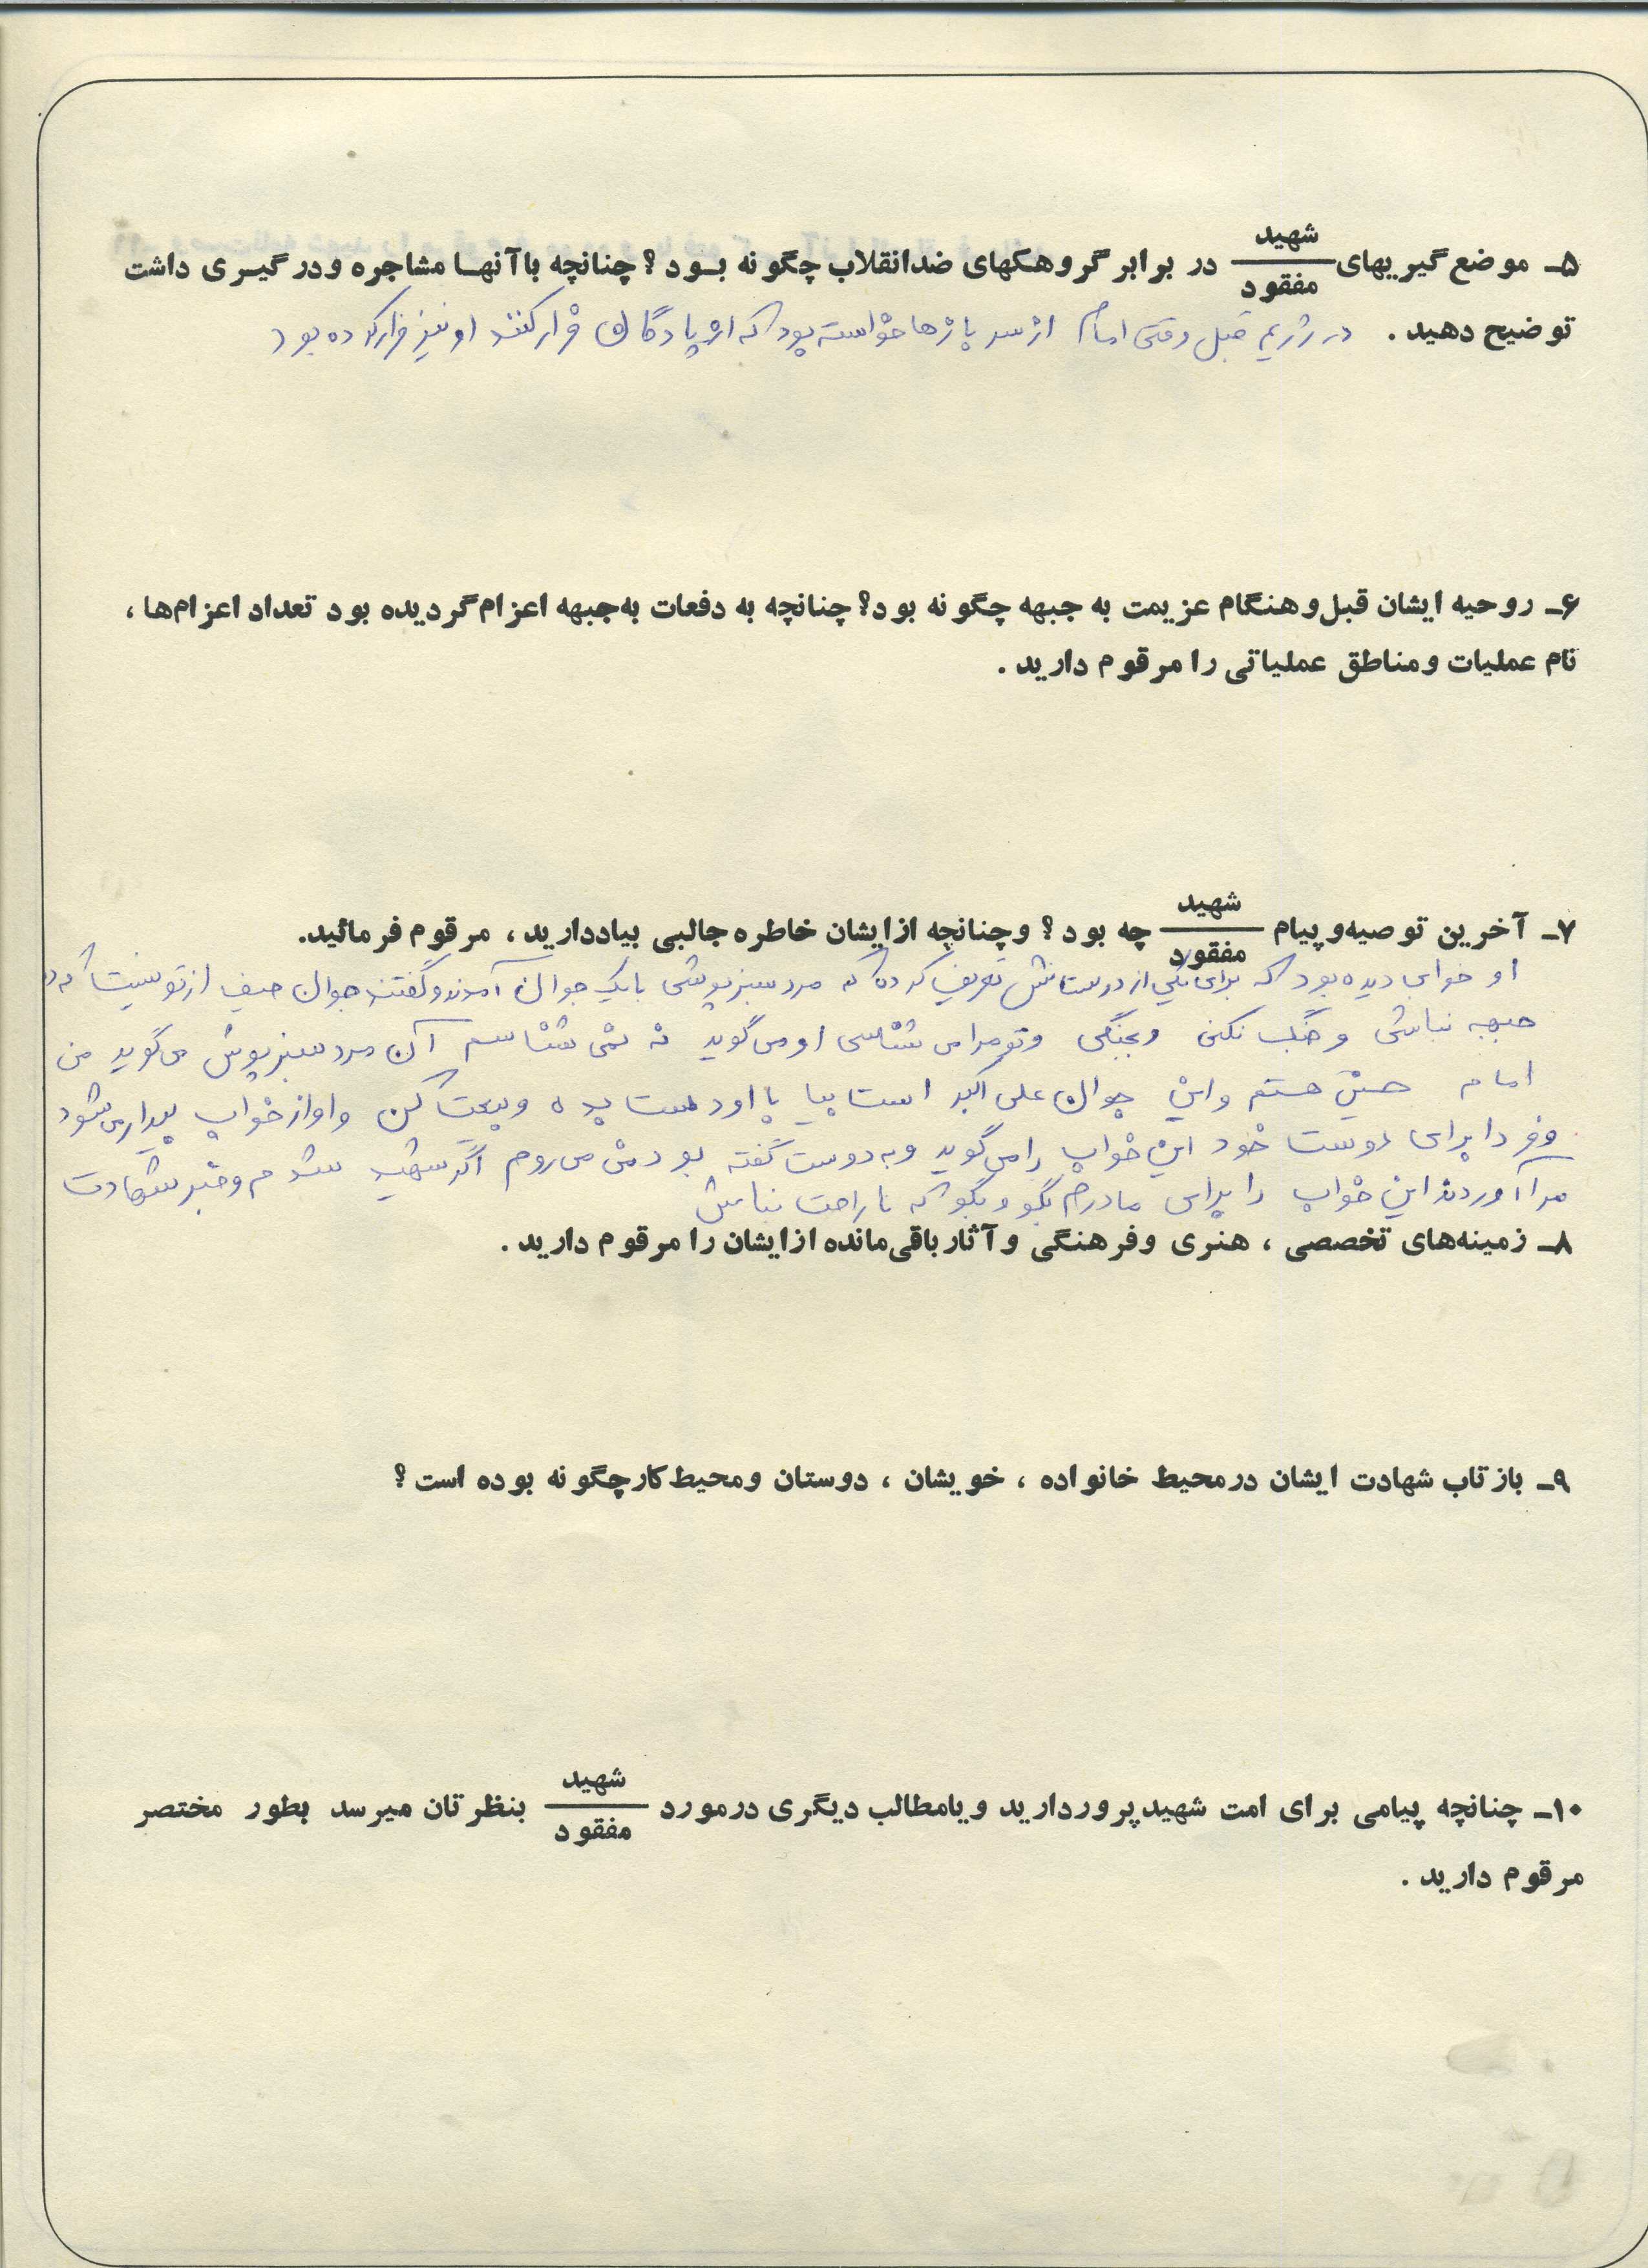 ۵ـ موضع گیریهای شهید/مفقود در برابر گروهکهای ضدانقلاب چگونه بـود ؟ چنانچه باآنهـا مشاجره ودرگیـری داشت
توضیح دهید . در رژیم قبل وقتی امام از سربازها خواسته بود که از پادگان فرار کنند او نیز فرار کرده بود
۶ـ روحیه ایشان قبل وهنگام عزیمت به جبهه چگونه بود؟ چنانچه به دفعات به‌جبهه اعزام گردیده بود تعداد اعزام‌ها ،
نام عملیات ومناطق عملیاتی را مرقوم دارید .
۷ـ آخرین توصیه‌وپیام شهید/مفقود چه بود ؟ وچنانچه ازایشان خاطره جالبی بیاددارید ، مرقوم فرمائید.
او خوابی دیده بود که برای یکی از دوستانش تعریف کرده که مرد سبزپوشی با یک جوان آمدند و گفتند جوان حیف از تو نیست که در
جبهه نباشی و جنگ نکنی و بجنگی و تو مرا می شناسی او می گوید نه نمی شناسم آن مرد سبزپوش می گوید من
امام حسین هستم و این جوان علی اکبر است بیا با او دست بده و بیعت کن و او از خواب بیدار می شود
و فردا برای دوست خود این خواب را می گوید و به دوست گفته بود من می روم اگر شهید شدم و خبر شهادت
مرا آوردند این خواب را برای مادرم بگو و بگو که ناراحت نباش
۸ـ زمینه‌های تخصصی ، هنری وفرهنگی وآثار باقی‌مانده ازایشان را مرقوم دارید .
۹ـ بازتاب شهادت ایشان درمحیط خانواده ، خویشان ، دوستان ومحیط کارچگونه بوده است ؟
۱۰ـ چنانچه پیامی برای امت شهیدپروردارید ویامطالب دیگری درمورد شهید/مفقود بنظرتان میرسد بطور مختصر
مرقوم دارید .